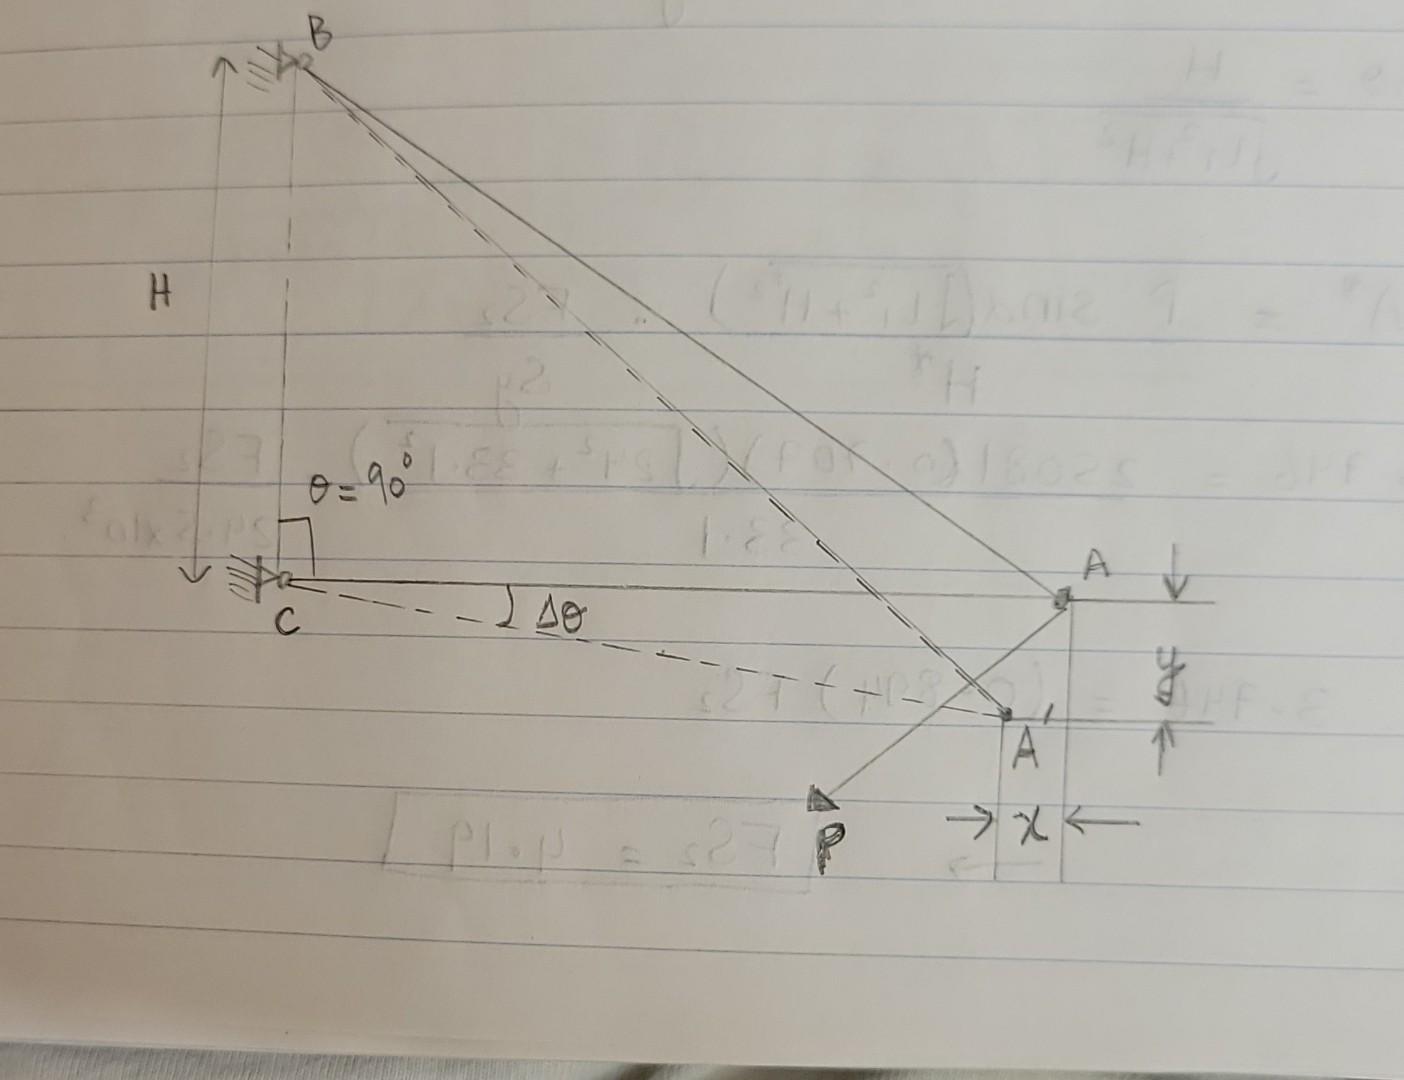 B
H
θ = 90°
C
Δθ
A
y
A'
x
P